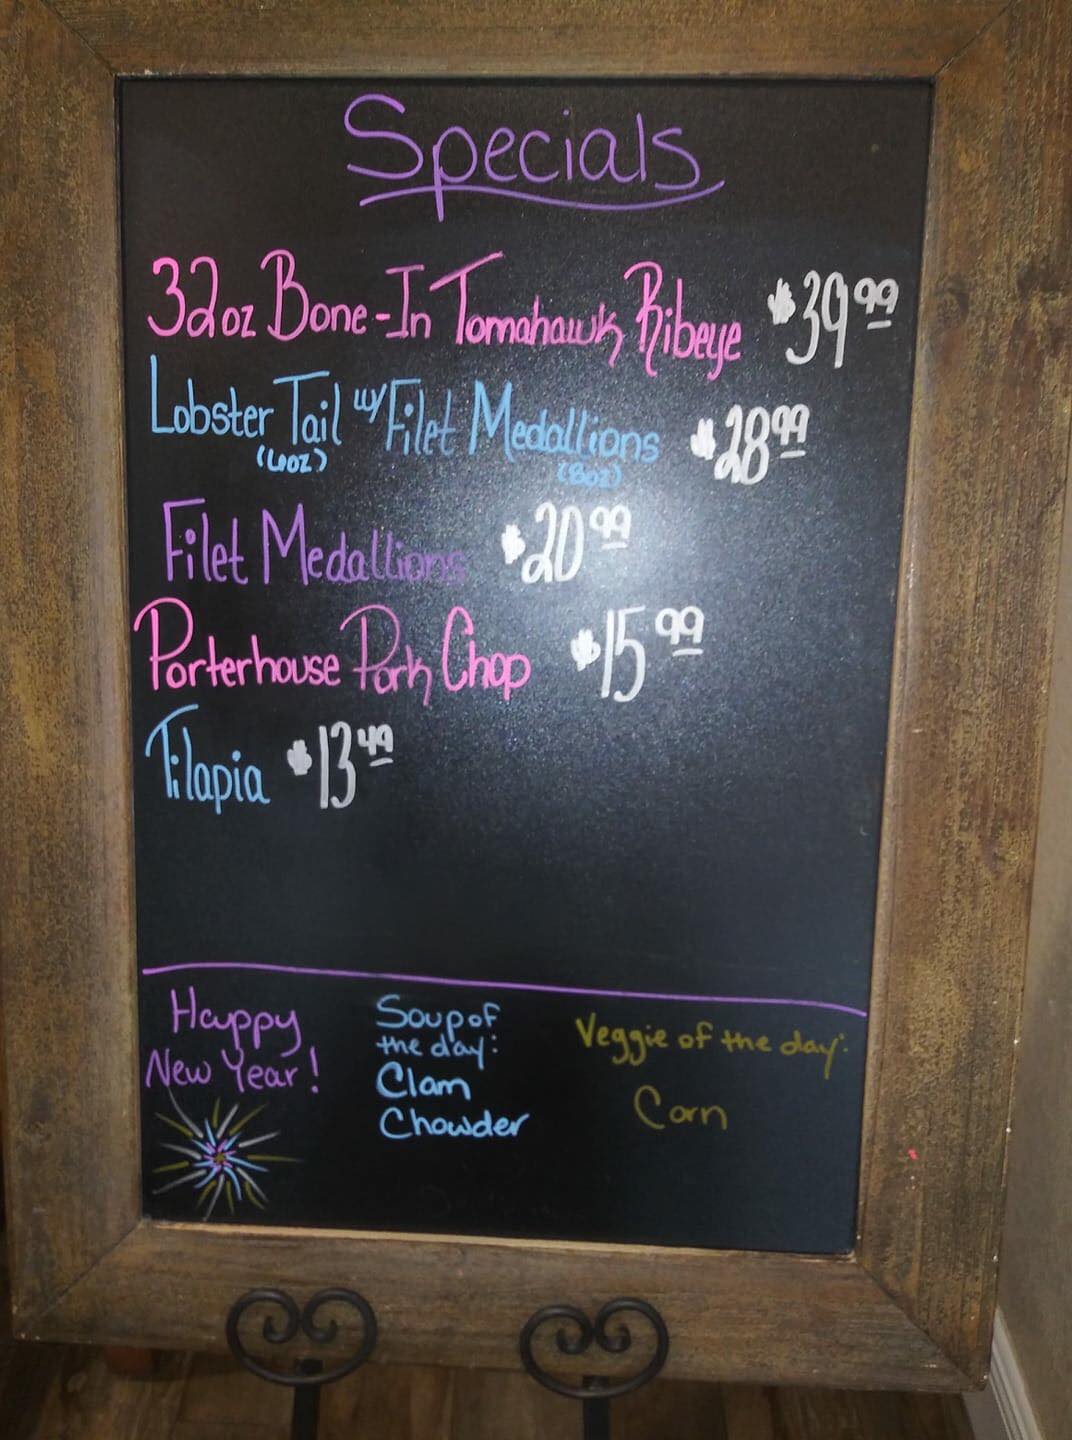 Specials
32oz Bone-In Tomahawk Ribeye $39.99
Lobster Tail w/ Filet Medallions $28.99
(6oz) (8oz)
Filet Medallions $20.99
Porterhouse Pork Chop $15.99
Tilapia $13.49
Happy
New Year!
Soup of
the day:
Clam
Chowder
Veggie of the day:
Corn